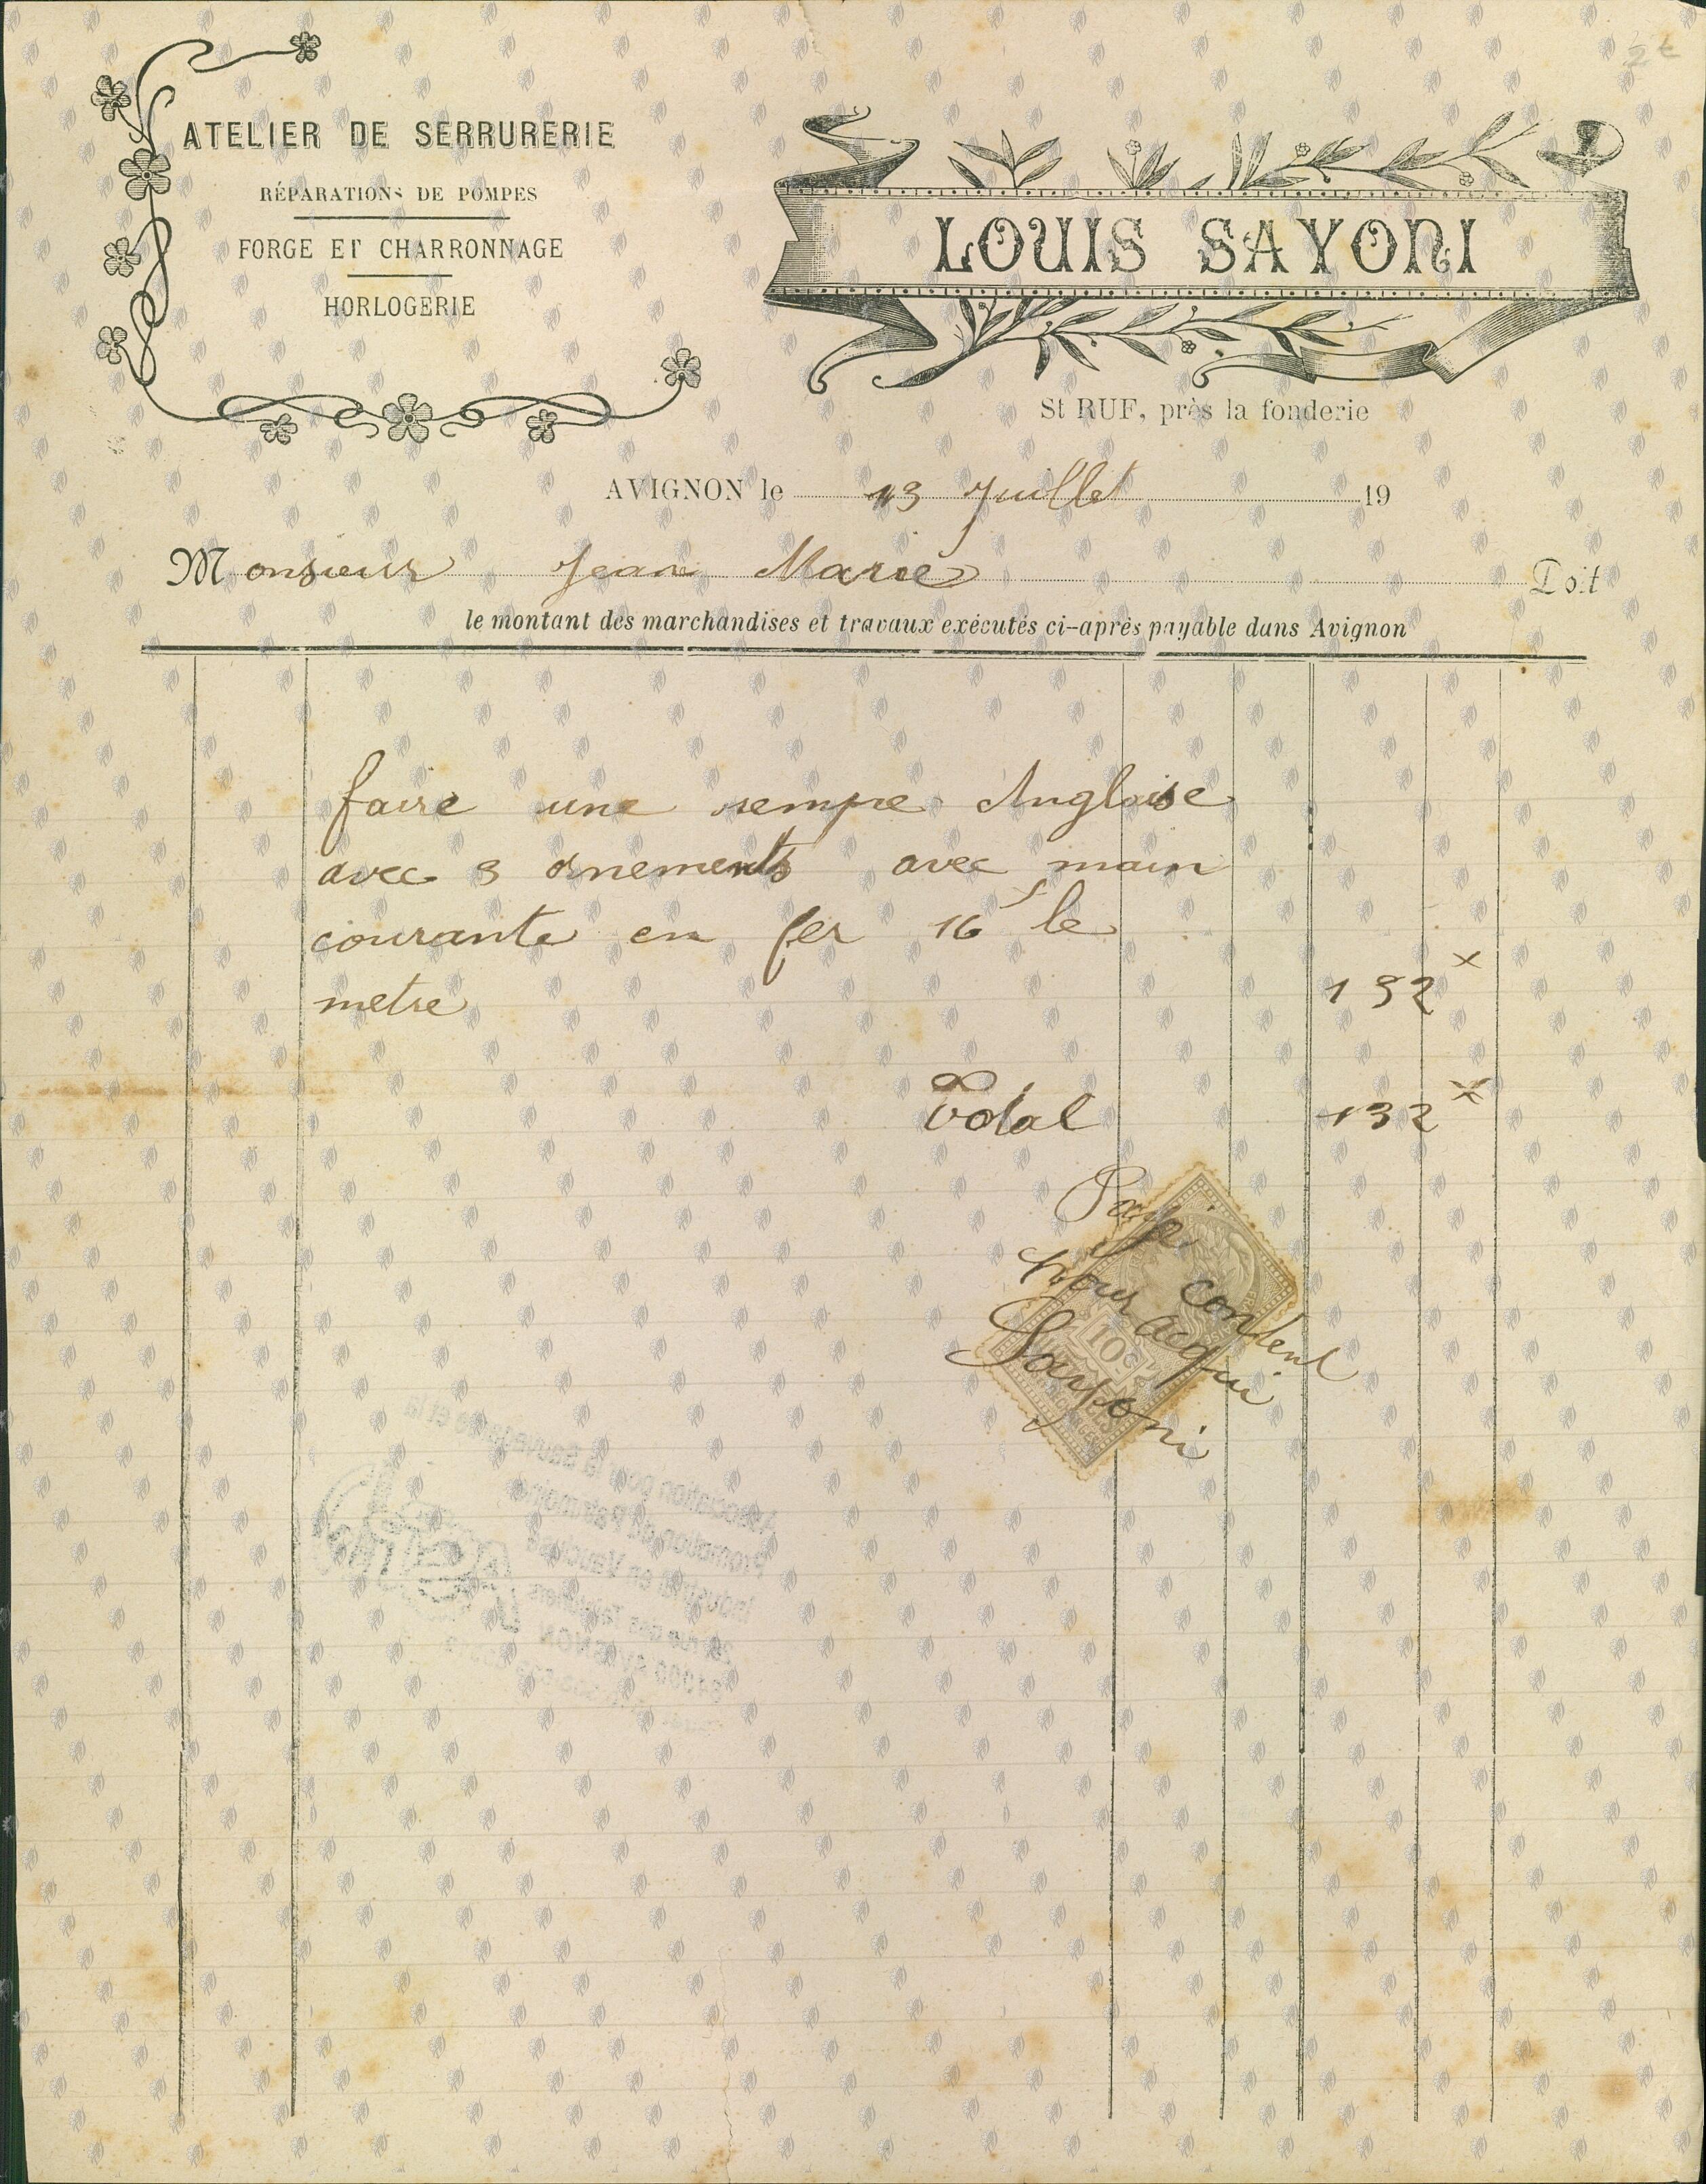 2€
ATELIER DE SERRURERIE
RÉPARATIONS DE POMPES
FORGE ET CHARRONNAGE
HORLOGERIE
LOUIS SAYONI
St RUF, près la fonderie
AVIGNON le 13 Juillet 19
Monsieur Jean Marie Doit
le montant des marchandises et travaux exécutés ci-après payable dans Avignon
faire une rempe Anglaise
avec 3 ornements avec main
courante en fer 16 f le
metre 132 x
Total 132 x
Payé
content
Pour acqui
Sayoni
10c
Association pour la Sauvegarde et la
Promotion du Patrimoine
Industriel en Vaucluse
rue des Teinturiers
84000 AVIGNON